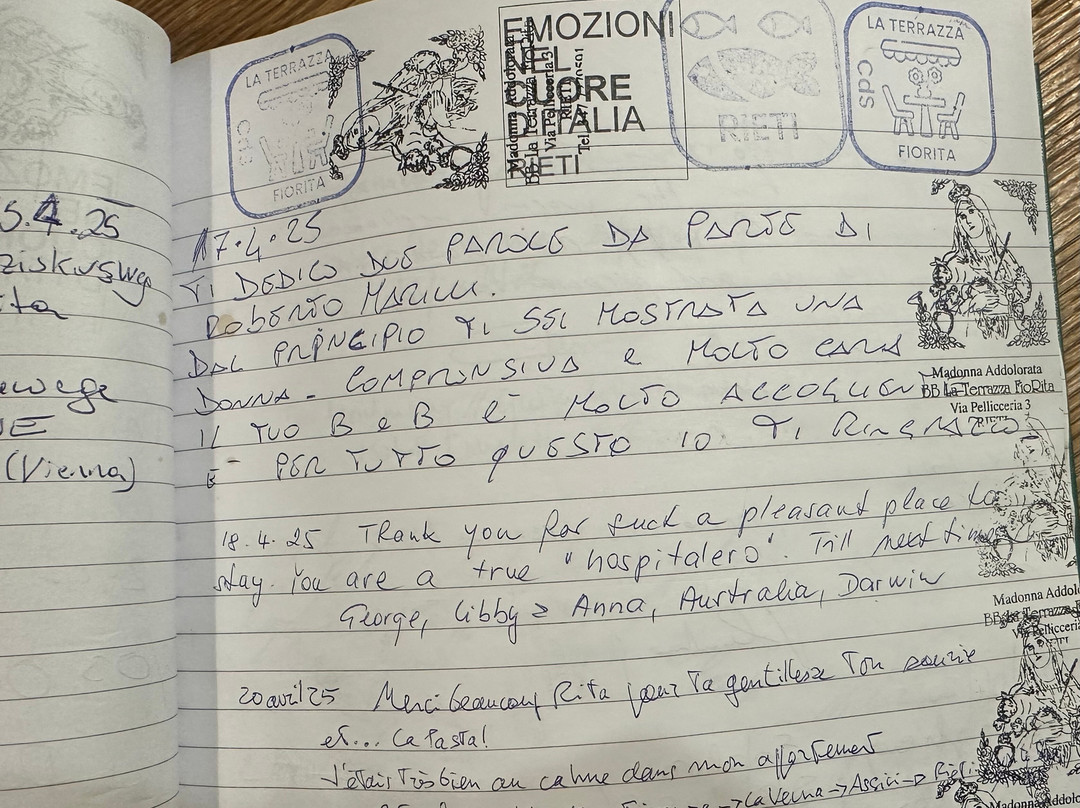 LA TERRAZZA
cds
FIORITA
EMOZIONI
NEL
CUORE
D'ITALIA
RIETI
Madonna Addolorata
BB La Terrazza
Via Pellicceria 3
RIETI
RIETI
LA TERRAZZA
cds
FIORITA
5.4.25
(Vienna)
17.4.25
TI DEDICO DUE PAROLE DA PARTE DI
ROBERTO
DAL PRINCIPIO TI SEI MOSTRATA UNA
DONNA - COMPRENSIVA e MOLTO CARA
IL TUO B e B È MOLTO
E PER TUTTO QUESTO IO TI
Madonna Addolorata
BB La Terrazza FioRita
Via Pellicceria 3
RIETI
18.4.25 Thank you for such a pleasant place to
stay. You are a true "hospitalero". Till next time
George, Libby & Anna, Australia, Darwin
Madonna Addolo
BB La Terrazza
Via Pellicceria
20 avril 25 Merci beaucoup Rita pour ta gentillesse ton sourire
et... la Pasta!
J'étais très bien au calme dans mon appartement
-> La Verna -> Assisi ->
Madonna Addolo